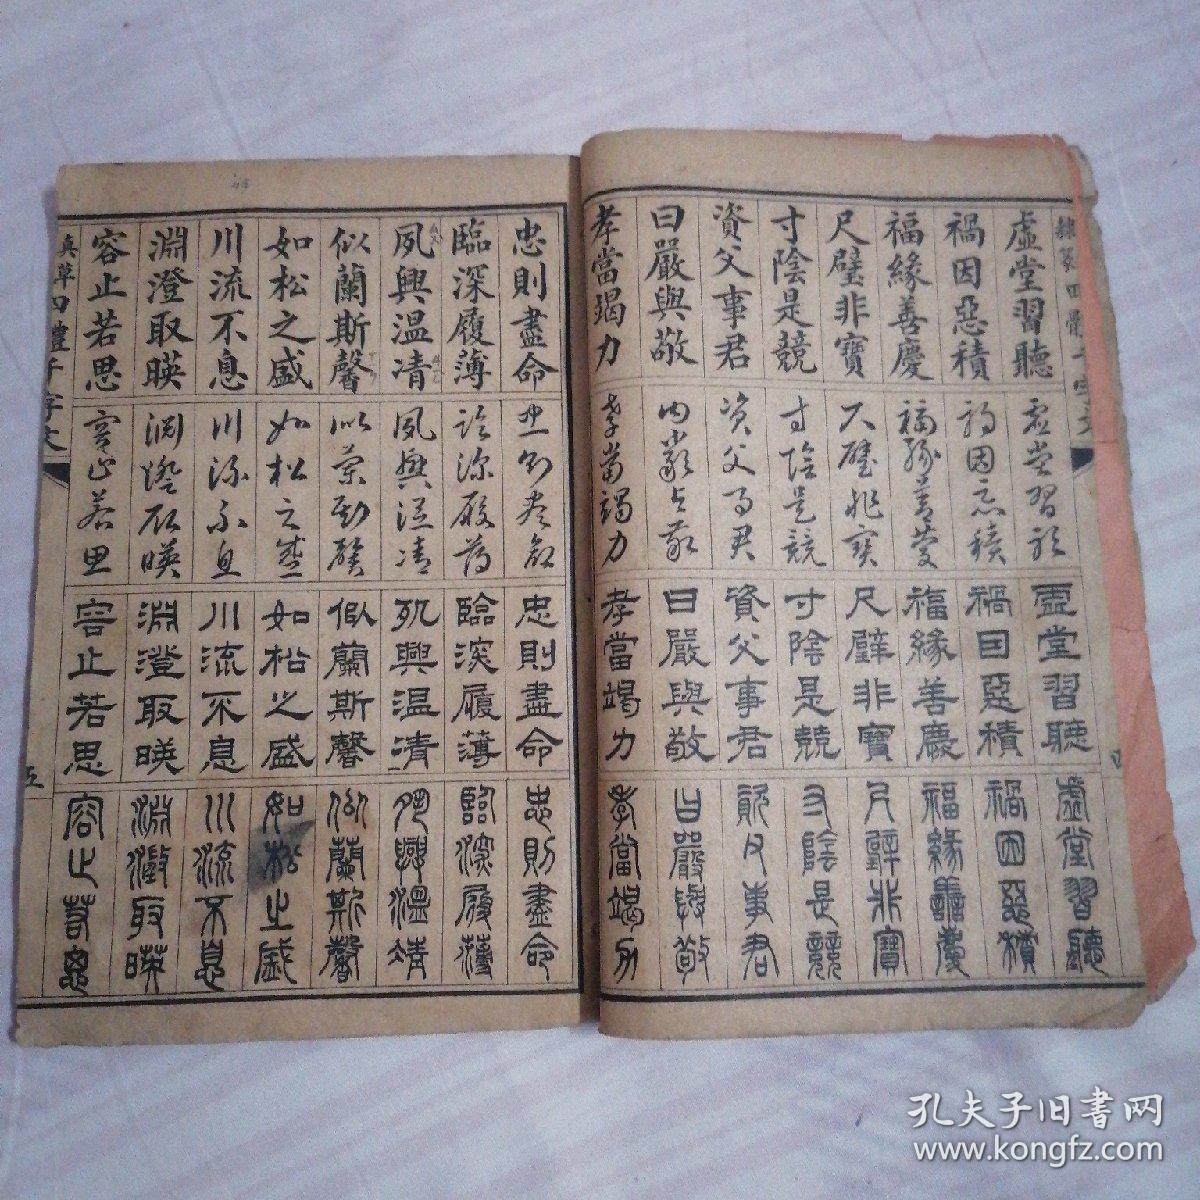 虛堂習聽
禍因惡積
福緣善慶
尺璧非寶
寸陰是競
資父事君
曰嚴與敬
孝當竭力
虛堂習聽
禍因惡積
福緣善慶
尺璧非寶
寸陰是競
資父事君
曰嚴與敬
孝當竭力
虛堂習聽
禍因惡積
福緣善慶
尺璧非寶
寸陰是競
資父事君
曰嚴與敬
孝當竭力
虛堂習聽
禍因惡積
福緣善慶
尺璧非寶
寸陰是競
資父事君
曰嚴與敬
孝當竭力
忠則盡命
臨深履薄
夙興溫凊
似蘭斯馨
如松之盛
川流不息
淵澄取暎
容止若思
忠則盡命
臨深履薄
夙興溫清
似蘭斯馨
如松之盛
川流不息
淵澄取暎
容止若思
忠則盡命
臨深履薄
夙興溫清
似蘭斯馨
如松之盛
川流不息
淵澄取暎
容止若思
忠則盡命
臨深履薄
夙興溫清
似蘭斯馨
如松之盛
川流不息
淵澄取暎
容止若思
真草四體千字文
五
孔夫子旧书网
www.kongfz.com